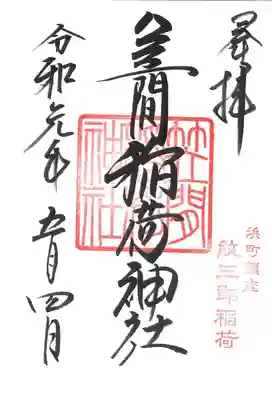 奉拝
笠間稲荷神社
令和元年五月四日
笠間
稲荷
神社
浜町鎮座
紋三郎稲荷